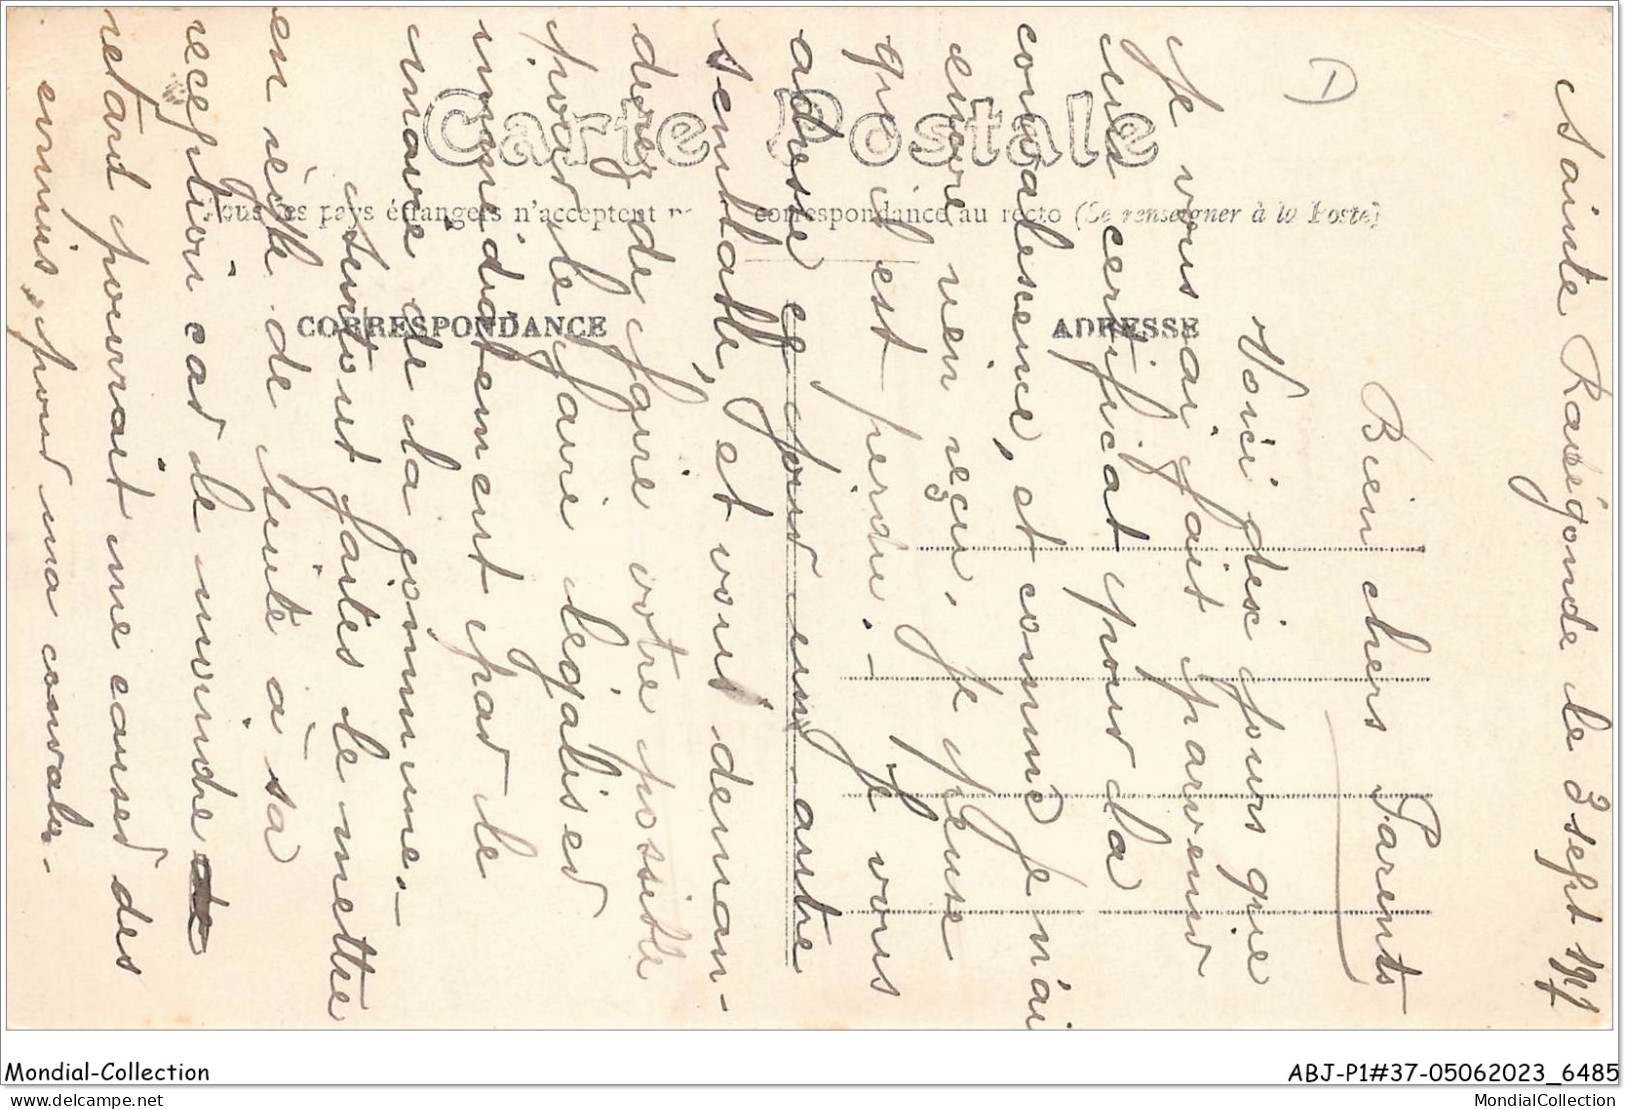 Carte Postale
Tous les pays étrangers n'acceptent pas correspondance au recto (Se renseigner à la Poste)
CORRESPONDANCE
ADRESSE
1
Sainte Radégonde le 3 sept 1917
Bien chers Parents
Voici dix jours que
Je vous ai fait parvenir
un certificat pour la
convalescence, et comme je n'ai
encore rien reçu, je pense
qu'il est perdu. – Je vous
adresse ce jour un autre
semblable, et vous deman-
derez de faire votre possible
pour le faire légaliser
immédiatement par le
maire de la commune. –
Surtout faites le mettre
en règle de suite à sa
réception car le moindre
retard pourrait me causer des
ennuis, pour ma convales-
Mondial-Collection
ABJ-P1#37-05062023_6485
delcampe.net
MondialCollection